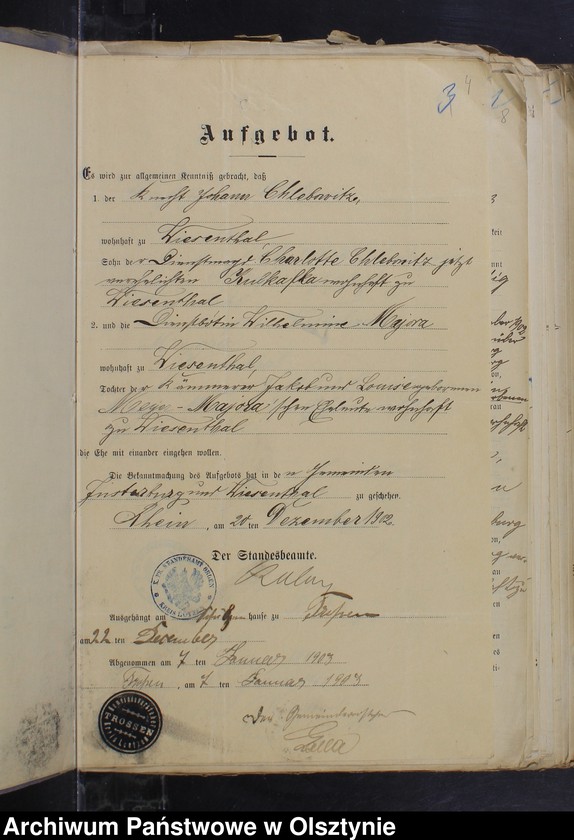 3 4
Aufgebot.
Es wird zur allgemeinen Kenntniß gebracht, daß
1. der Knecht Johann Chlebowitz,
wohnhaft zu Wiesenthal
Sohn der Dienstmagd Charlotte Chlebowitz jetzt
verehelichten Kulkafka wohnhaft zu
Wiesenthal
2. und die Dienstbotin Wilhelmine Majora
wohnhaft zu Wiesenthal,
Tochter der Kämmerer Jakob und Louise geborenen
Majora'schen Eheleute wohnhaft
zu Wiesenthal
die Ehe mit einander eingehen wollen.
Die Bekanntmachung des Aufgebots hat in den Gemeinden
und Wiesenthal zu geschehen.
Rhein, am 20 ten Dezember 1902.
Der Standesbeamte.
Ausgehängt am hause zu
am 22 ten Dezember
Abgenommen am 7 ten Januar 1903
am 7 ten Januar 1903
TROSSEN
Der Gemeindevorsteher
Archiwum Państwowe w Olsztynie